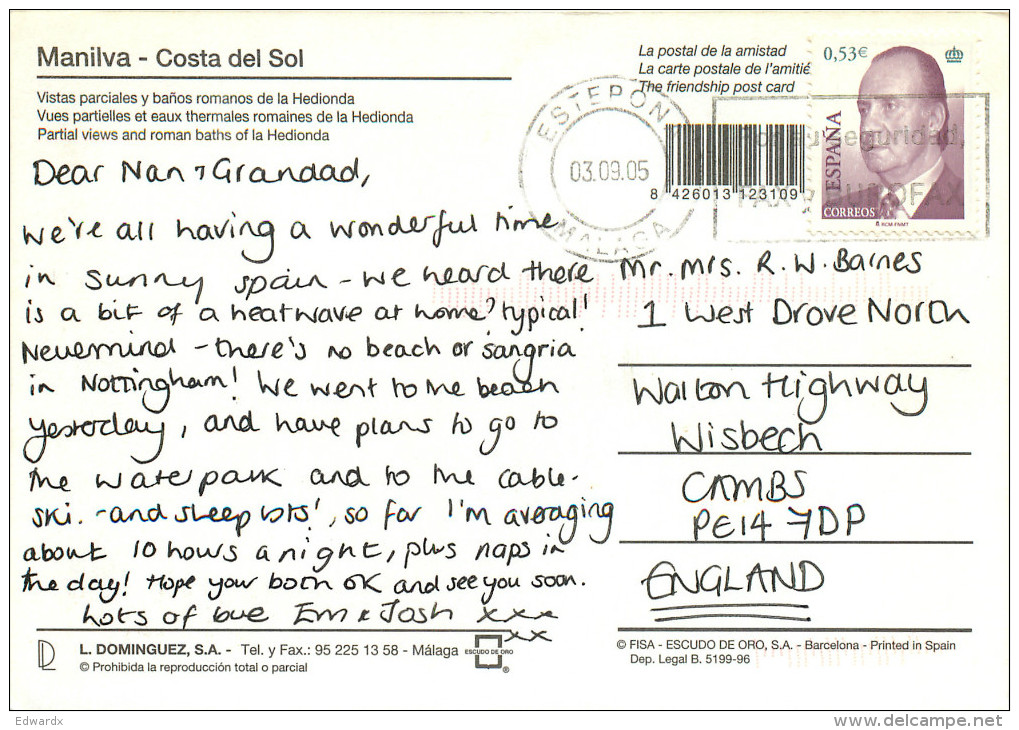 Manilva - Costa del Sol
Vistas parciales y baños romanos de la Hedionda
Vues partielles et eaux thermales romaines de la Hedionda
Partial views and roman baths of la Hedionda
La postal de la amistad
La carte postale de l'amitié
The friendship post card
0,53€
ESPAÑA
CORREOS
RCM-FNMT
ESTEPONA
03.09.05
MALAGA
seguridad,
FAX
BUROFAX
8 426013 123109
Dear Nan & Grandad,
We're all having a wonderful time
in sunny spain - we heard there
is a bit of a heatwave at home? typical!
Nevermind - there's no beach or sangria
in Nottingham! We went to the beach
yesterday, and have plans to go to
the waterpark and to the cable-
ski. - and sleep lots!, so far I'm averaging
about 10 hours a night, plus naps in
the day! Hope your both OK and see you soon.
Lots of love Em & Josh xxx
xx
Mr. Mrs. R. W. Barnes
1 West Drove North
Walton Highway
Wisbech
CAMBS
PE14 7DP
ENGLAND
L. DOMINGUEZ, S.A. - Tel. y Fax.: 95 225 13 58 - Málaga
© Prohibida la reproducción total o parcial
ESCUDO DE ORO
®
© FISA - ESCUDO DE ORO, S.A. - Barcelona - Printed in Spain
Dep. Legal B. 5199-96
Edwardx
www.delcampe.net